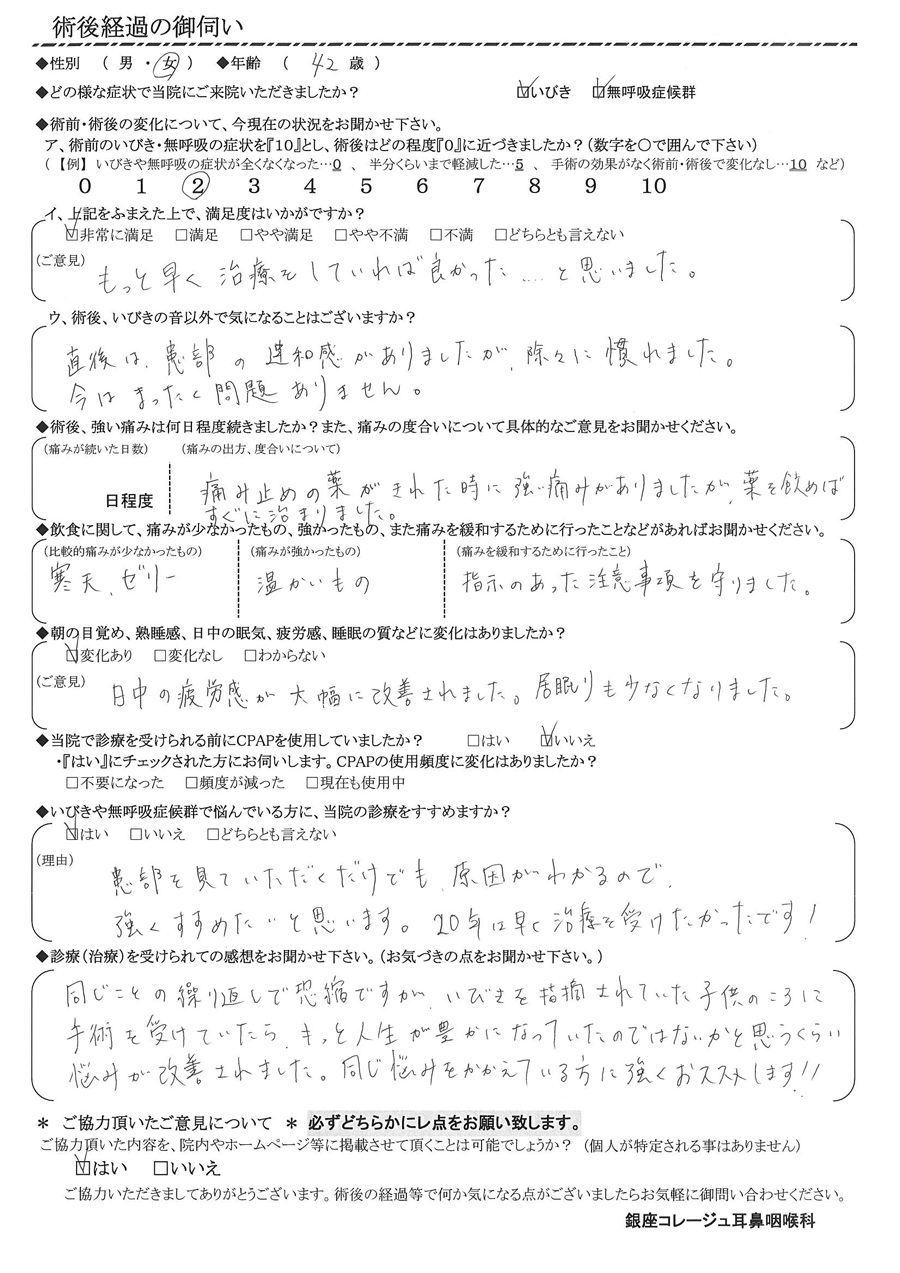 術後経過の御伺い
◆性別 （ 男 ・ 女 ） ◆年齢 （ 42 歳 ）
◆どの様な症状で当院にご来院いただきましたか？ ☑いびき ☑無呼吸症候群
◆術前・術後の変化について、今現在の状況をお聞かせ下さい。
ア、術前のいびき・無呼吸の症状を『10』とし、術後はどの程度『0』に近づきましたか？（数字を○で囲んで下さい）
（【例】 いびきや無呼吸の症状が全くなくなった…0 、 半分くらいまで軽減した…5 、 手術の効果がなく術前・術後で変化なし…10 など）
0 1 2 3 4 5 6 7 8 9 10
イ、上記をふまえた上で、満足度はいかがですか？
☑非常に満足 □満足 □やや満足 □やや不満 □不満 □どちらとも言えない
（ご意見） もっと早く 治療をしていれば良かった……と思いました。
ウ、術後、いびきの音以外で気になることはございますか？
直後は、患部の違和感がありましたが、除々に慣れました。
今はまったく問題ありません。
◆術後、強い痛みは何日程度続きましたか？また、痛みの度合いについて具体的なご意見をお聞かせください。
（痛みが続いた日数） （痛みの出方、度合いについて）
日程度 痛み止めの薬がきれた時に強い痛みがありましたが、薬を飲めば
すぐに治まりました。
◆飲食に関して、痛みが少なかったもの、強かったもの、また痛みを緩和するために行ったことなどがあればお聞かせください。
（比較的痛みが少なかったもの） （痛みが強かったもの） （痛みを緩和するために行ったこと）
寒天、ゼリー 温かいもの 指示のあった注意事項を守りました。
◆朝の目覚め、熟睡感、日中の眠気、疲労感、睡眠の質などに変化はありましたか？
☑変化あり □変化なし □わからない
（ご意見） 日中の疲労感が大幅に改善されました。居眠りも少なくなりました。
◆当院で診療を受けられる前にCPAPを使用していましたか？ □はい ☑いいえ
・『はい』にチェックされた方にお伺いします。CPAPの使用頻度に変化はありましたか？
□不要になった □頻度が減った □現在も使用中
◆いびきや無呼吸症候群で悩んでいる方に、当院の診療をすすめますか？
☑はい □いいえ □どちらとも言えない
（理由） 患部を見ていただくだけでも、原因がわかるので、
強くすすめたいと思います。20年は早く治療を受けたかったです！
◆診療（治療）を受けられての感想をお聞かせ下さい。（お気づきの点をお聞かせ下さい。）
同じことの繰り返しで恐縮ですが、いびきを指摘されていた子供のころに
手術を受けていたら、きっと人生が豊かになっていたのではないかと思うくらい
悩みが改善されました。同じ悩みをかかえている方に強くおススメします！！
＊ ご協力頂いたご意見について ＊ 必ずどちらかにレ点をお願い致します。
ご協力頂いた内容を、院内やホームページ等に掲載させて頂くことは可能でしょうか？（個人が特定される事はありません）
☑はい □いいえ
ご協力いただきましてありがとうございます。術後の経過等で何か気になる点がございましたらお気軽に御問い合わせください。
銀座コレージュ耳鼻咽喉科